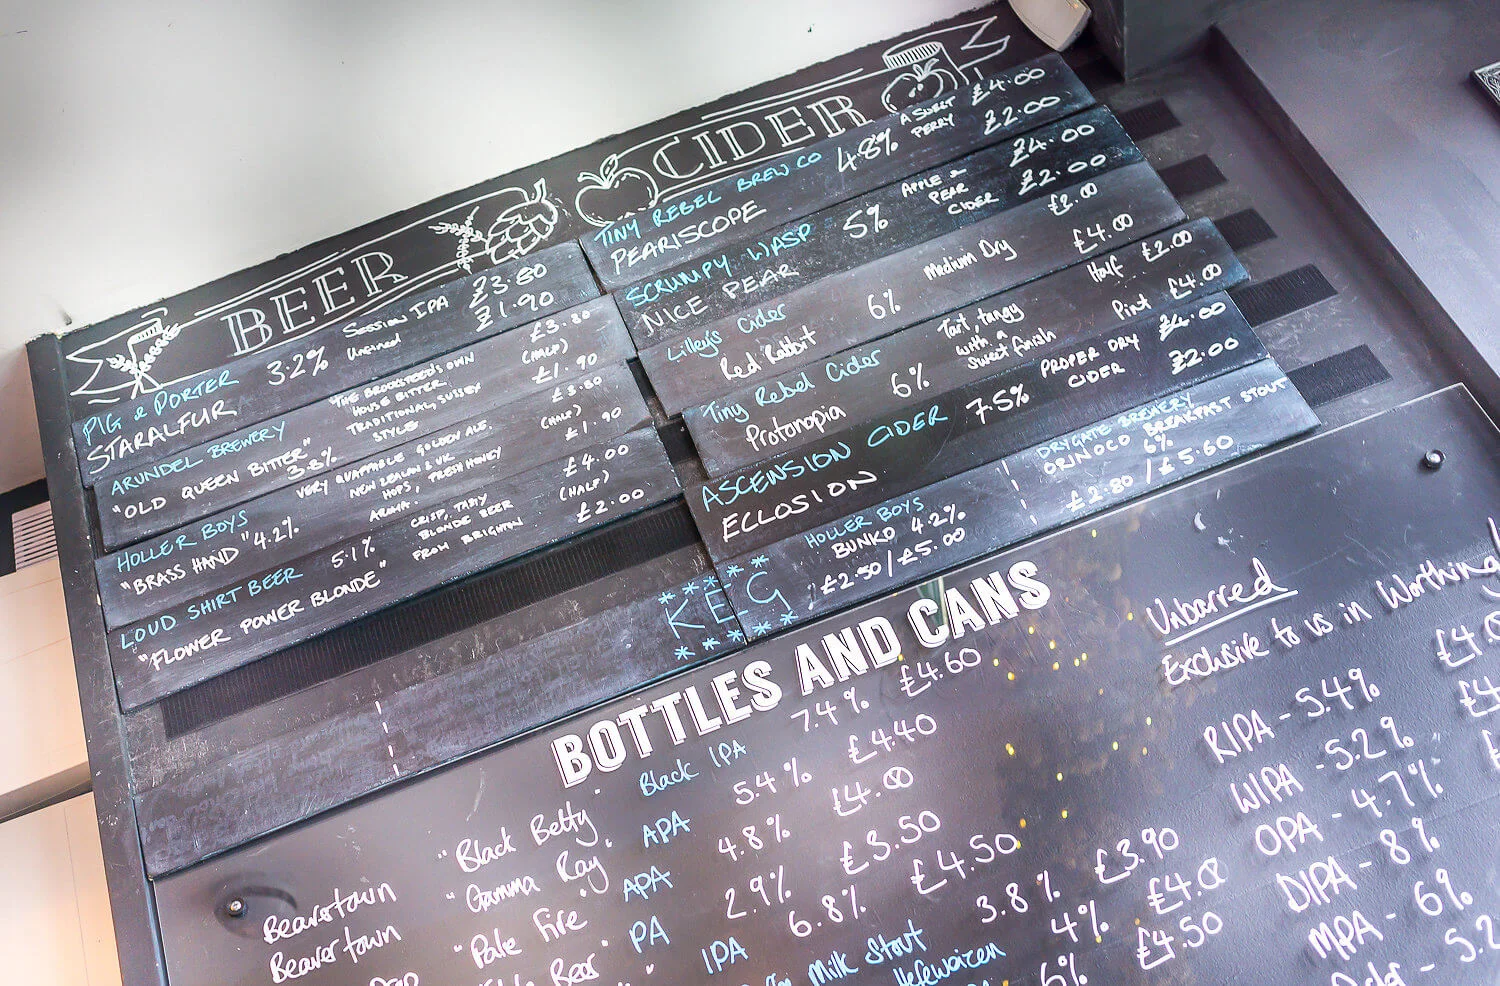 BEER
PIG & PORTER 3.2% SESSION IPA £3.80
STARALFUR Unfined £1.90
ARUNDEL BREWERY THE BROOKSTEED'S OWN £3.80
"OLD QUEEN BITTER" HOUSE BITTER. (HALF)
3.8% TRADITIONAL, SUSSEX £1.90
STYLE
HOLLER BOYS VERY QUAFFABLE GOLDEN ALE. £3.80
"BRASS HAND" 4.2% NEW ZEALAN & UK (HALF)
HOPS, FRESH HONEY £1.90
AROMA.
LOUD SHIRT BEER 5.1% CRISP, TASTY £4.00
"FLOWER POWER BLONDE" BLONDE BEER (HALF)
FROM BRIGHTON £2.00
CIDER
TINY REBEL BREW CO 4.8% A SWEET £4.00
PEARISCOPE PERRY £2.00
SCRUMPY WASP 5% APPLE & £4.00
NICE PEAR PEAR £2.00
CIDER
Lilley's Cider 6% Medium Dry £2.00
Red Rabbit £4.00
Tiny Rebel Cider 6% Tart, tangy Half £2.00
Protonopia with a Pint £4.00
sweet finish
ASCENSION CIDER 7.5% PROPER DRY £4.00
ECLOSION CIDER £2.00
KEG
HOLLER BOYS
BUNKO 4.2%
£2.50/£5.00
DRYGATE BREWERY
ORINOCO BREAKFAST STOUT
6%
£2.80/£5.60
BOTTLES AND CANS
Beavertown "Black Betty" Black IPA 7.4% £4.60
Beavertown "Gamma Ray" APA 5.4% £4.40
"Pale Fire" APA 4.8% £4.00
Beer" PA 2.9% £3.50
IPA 6.8% £4.50
Milk Stout 3.8% £3.90
Hefeweizen 4% £4.00
6% £4.50
Unbarred
Exclusive to us in Worthing
RIPA - 5.4%
WIPA - 5.2%
OPA - 4.7%
DIPA - 8%
MPA - 6%